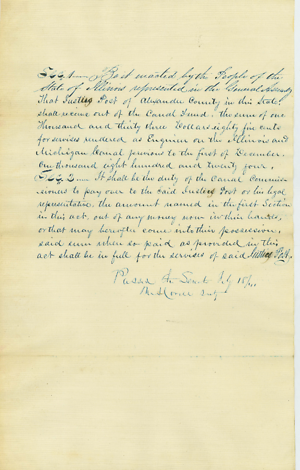 Sec 1 Be it enacted by the People of the
State of Illinois represented in the General Assembly
That Justus Post of Alexander County in this State,
shall receive out of the Canal Fund, the sum of one
Thousand and thirty three Dollars eighty five cents
for services rendered as Engineer on the Illinois and
Michigan Canal previous to the first of December
One thousand eight hundred and twenty four.
Sec 2 It shall be the duty of the Canal Commis-
sioners to pay over to the said Justus Post or his legal
representative the amount named in the first Section
in this act, out of any money now in their hands,
or that may hereafter come into their possession.
said sum when so paid as provided in this
act shall be in full for the services of said Justus Post.
Passed the Senate